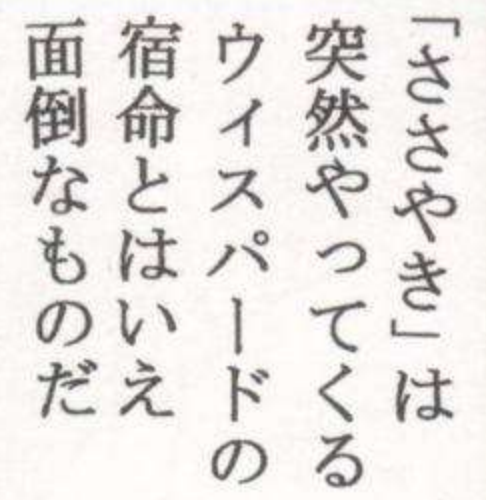 「ささやき」は
突然やってくる
ウィスパードの
宿命とはいえ
面倒なものだ